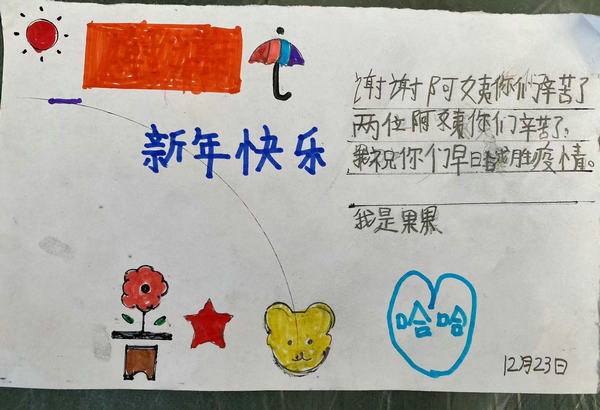 新年快乐
谢谢阿姨你们辛苦了
两位阿姨你们辛苦了,
我祝你们早日战胜疫情。
我是果果
哈哈
12月23日